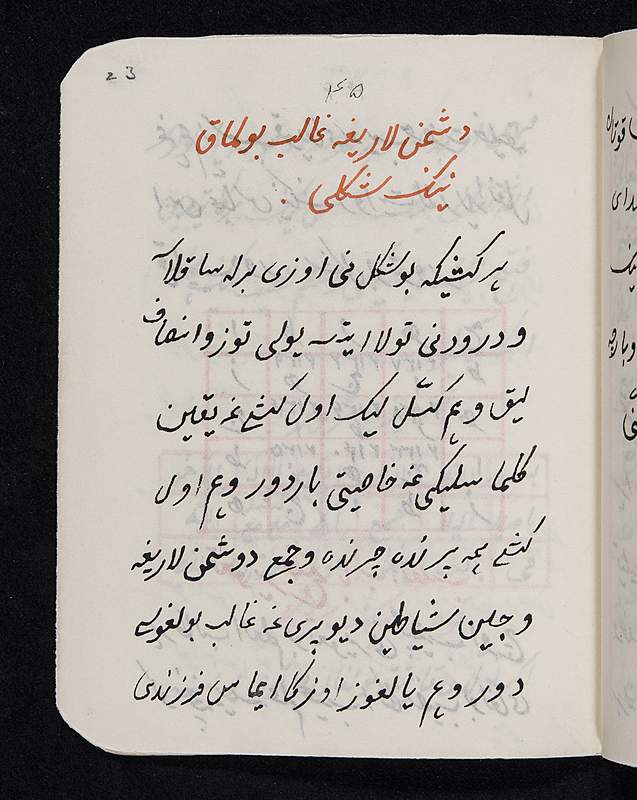 23
۴۵
دشمن لاریغه غالب بولماق
نینک شکلی
هر کشیکه بو شکل نی اوزی برله ساقلاسه
و درودنی تولا ایتسه یولی توز و انصاف
لیق و هم کسل لیک اول کشی غه یقین
کلماسلیکی غه خاصیتی باردور و هم اول
کشی همه پرنده چرنده و جمع دوشمن لاریغه
و جین شیاطین دیو پری غه غالب بولغوسی
دور و هم یالغوز اوزکا ایماس فرزندی